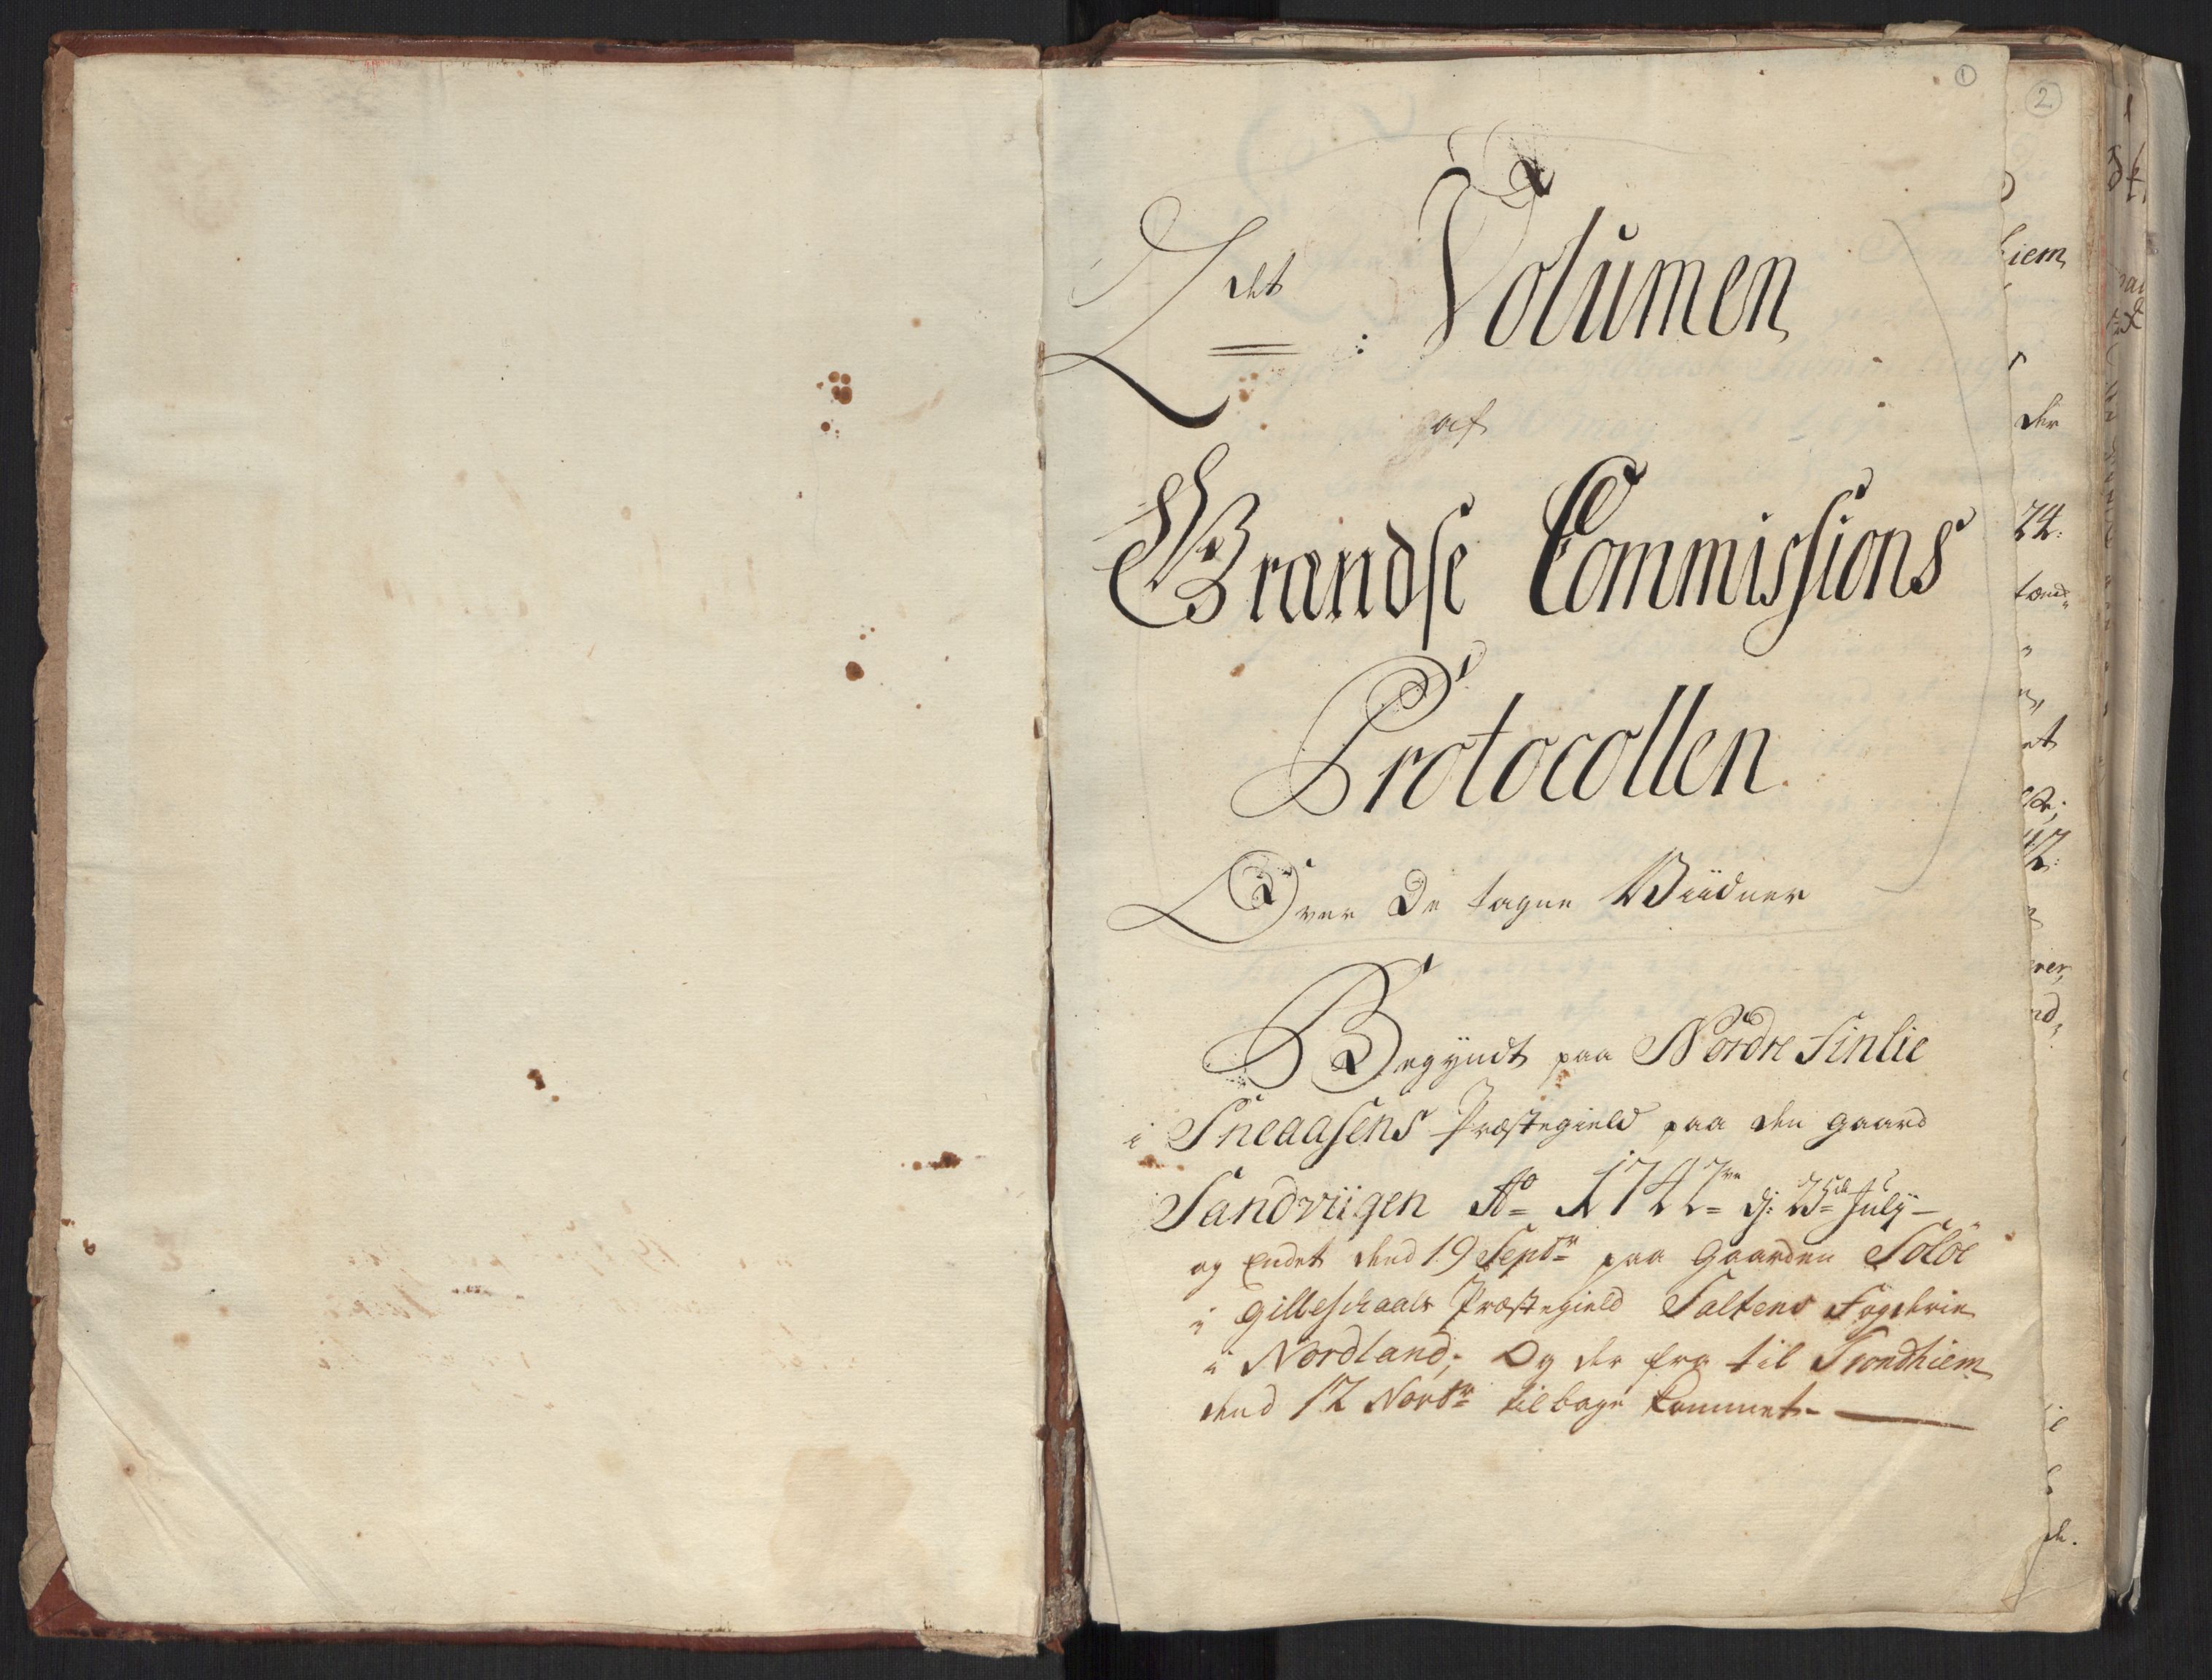 1
2det Volumen
af
Grændse Commissions
Protocollen
Over De tagne Viidner
Begyndt paa Nordre Finlie
i Sneaasens Præstegield paa den gaard
Sandviigen Ao 1742 d: 25de July
og Endet dend 19 Septr paa Gaarden Soløe
i Gilleschaals Præstegield Saltens Fogderie
i Nordland; Og der fra til Trondhiem
dend 12 Novbr tilbage kommet
2
hiem
der
24:
et
12:
ner,
nd,
de.